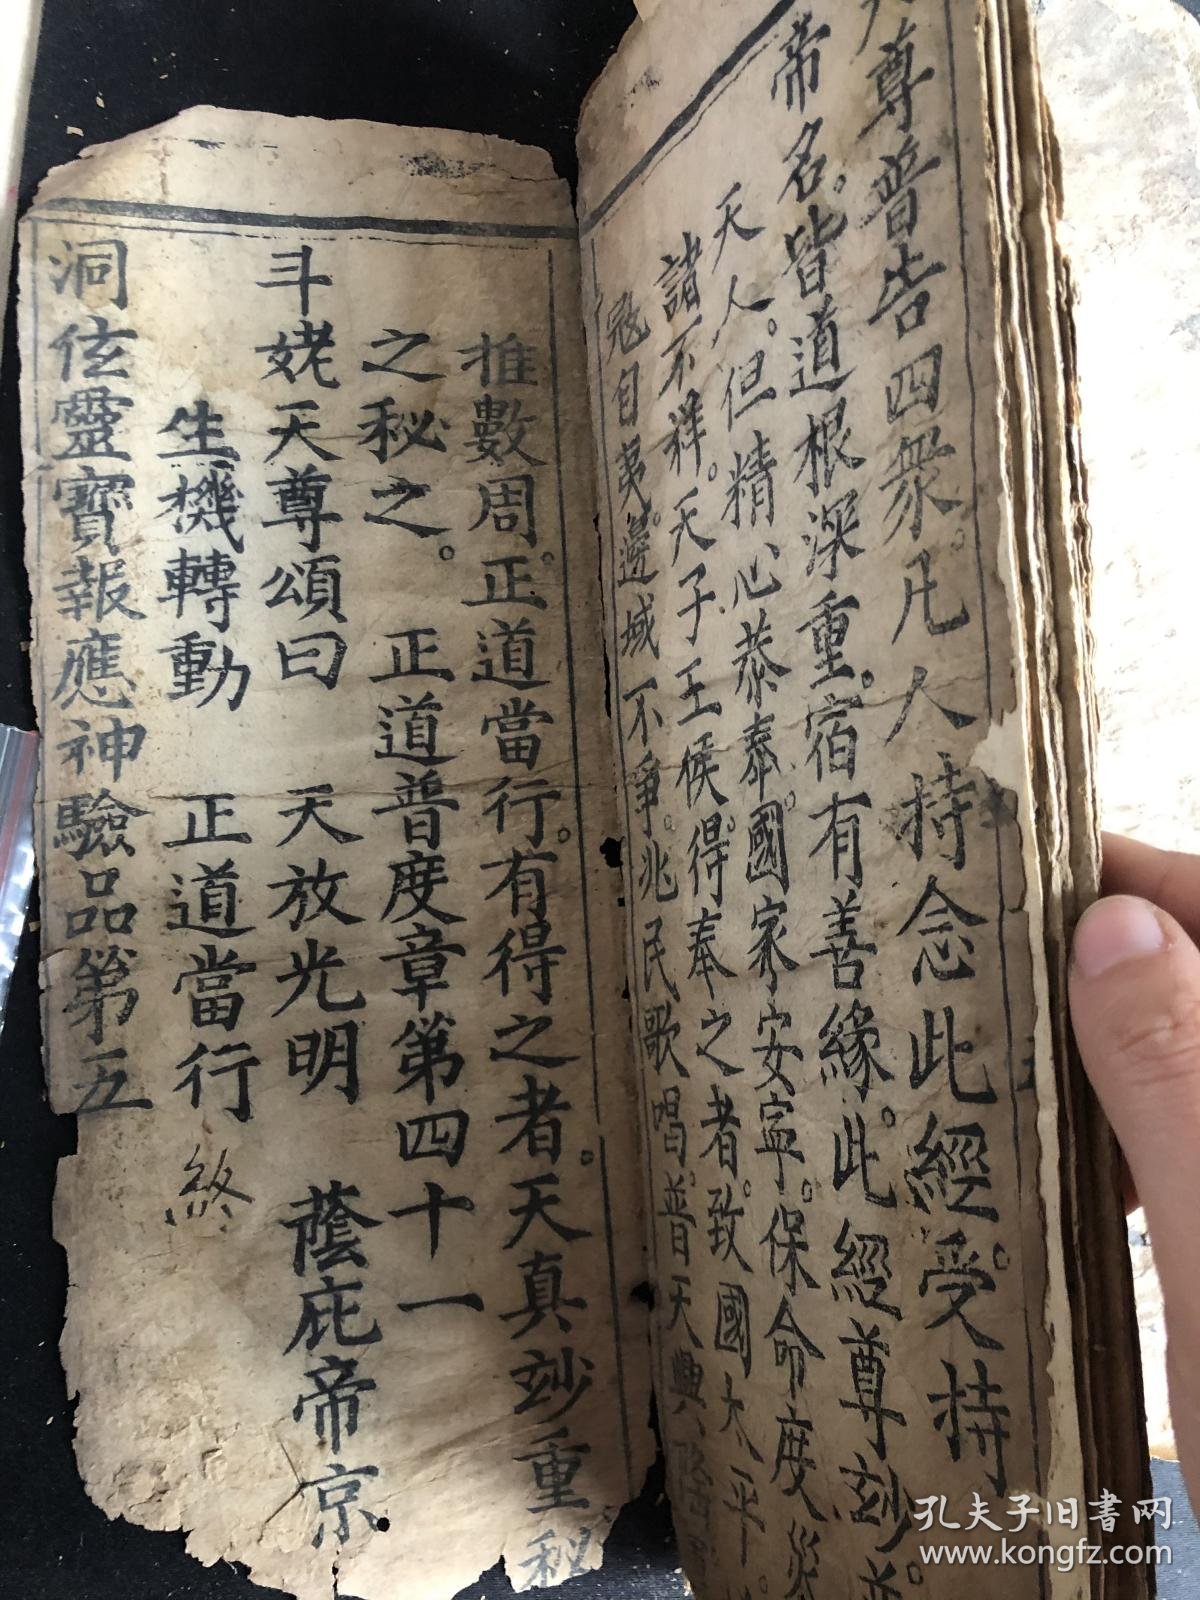 尊普告四衆。凡人持念此經。受持
帝名。皆道根深重。宿有善緣。此經尊玅
天人。但精心恭奉。國家安寧。保命度災
諸不祥。天子王候。得奉之者。致國太平。
寇自夷。邊域不爭。兆民歌唱。普天興
推數周。正道當行。有得之者。天真玅重秘
之秘之。 正道普度章第四十一
斗姥天尊頌曰 天放光明 蔭庇帝京
生機轉動 正道當行 終
洞玹靈寶報應神驗品第五
孔夫子旧書网
www.kongfz.com